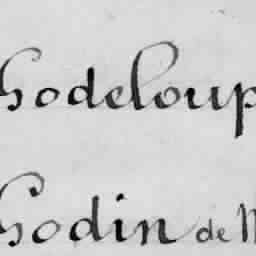 Godeloup
Godin de